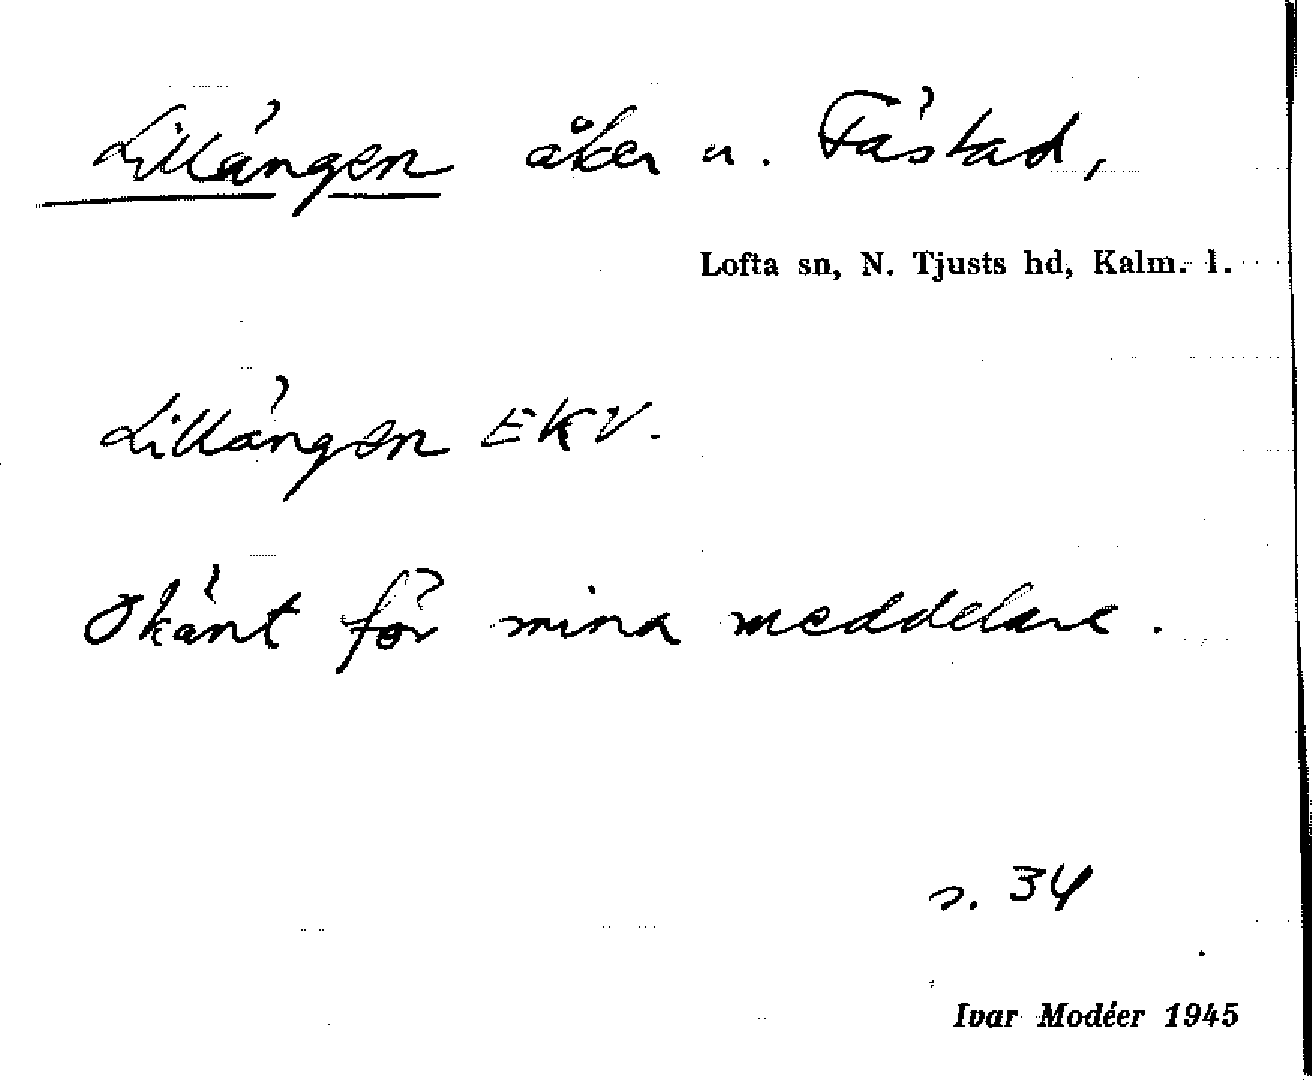 Lillängen åker u. Fästad,
Lofta sn, N. Tjusts hd, Kalm. l.
Lillängen EKV.
Okänt för mina meddelare.
s. 34
Ivar Modéer 1945